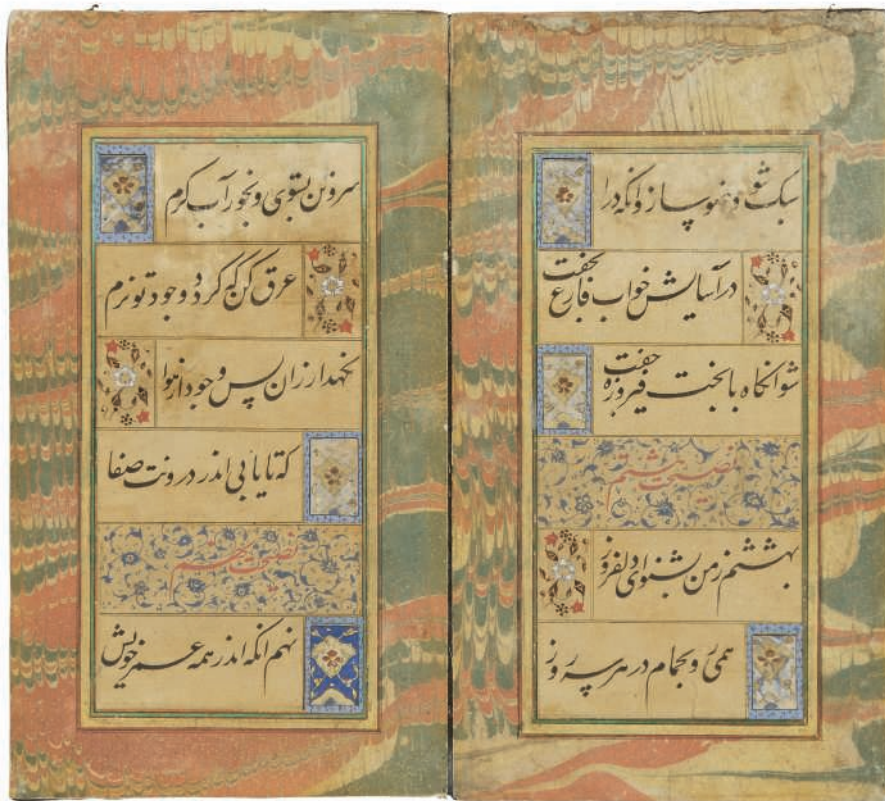 سبک شو و نمو ساز وانکه درا
در آسایش خواب فارغ بخفت
شو انکاه با بخت فیروزه جفت
نصیحت هشتم
بهشتم ز من بشنو ای دلفروز
همی رو بحمام در هر سه روز
سر و تن بشوی و بخور آب کرم
عرق کن که کردد وجود تو نرم
نکهدار زان پس وجود از هوا
که تا یابی اندر درونت صفا
نصیحت نهم
نهم انکه اندر همه عمر خویش